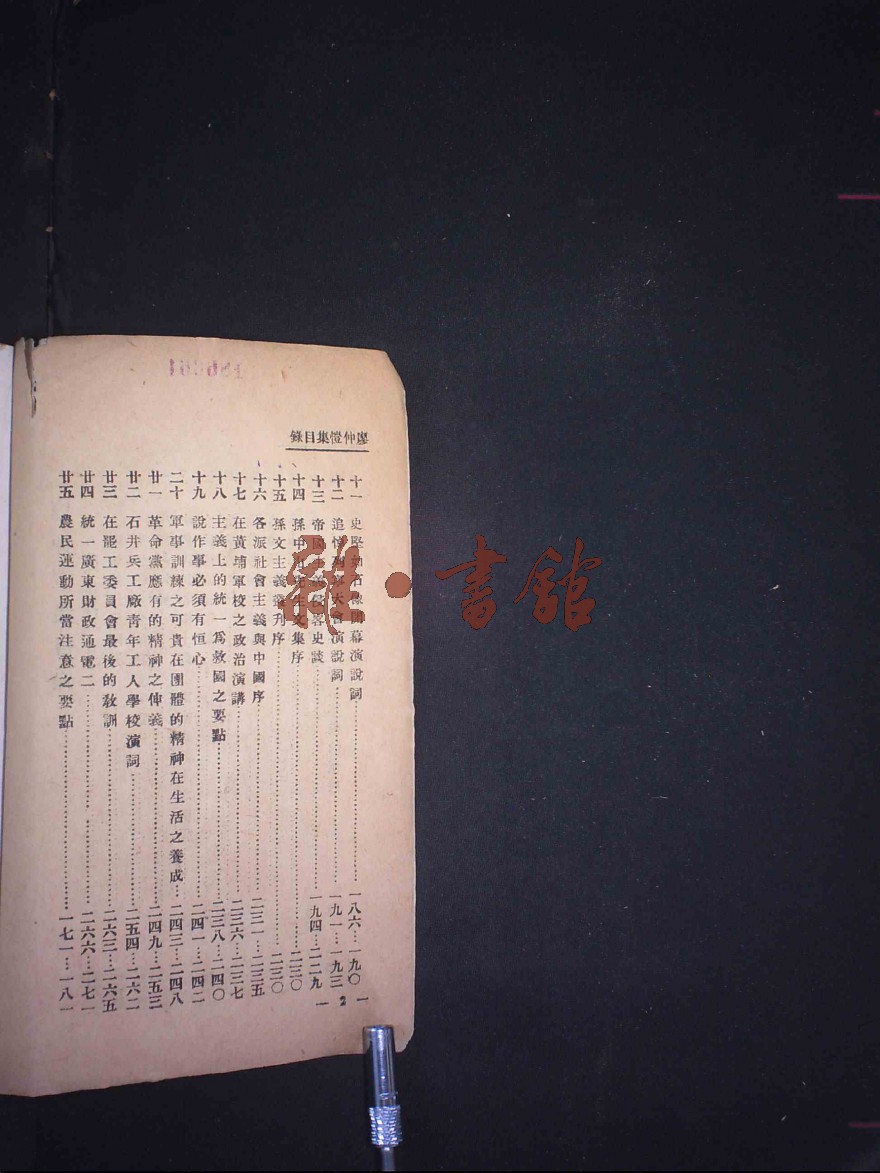 廖仲愷集目錄
十一 史堅如石像開幕演說詞 一八六…一九〇
十二 追悼列寧大會演說詞 一九一…一九三
十三 帝國主義侵畧史談 一九四…二二九
十四 孫中山先生文集序 二三〇
十五 孫文主義叢刊序 二三〇
十六 各派社會主義與中國序 二三一…二三五
十七 在黃埔軍校之政治演講 二三六…二三七
十八 主義上的統一爲救國之要點 二三八…二四〇
十九 說作事必須有恒心 二四一…二四二
二十 軍事訓練之可貴在團體的精神在生活之養成 二四三…二四八
廿一 革命黨應有的精神之伸義 二四九…二五三
廿二 石井兵工廠青年工人學校演詞 二五四…二六二
廿三 在罷工委員會最後的教訓 二六三…二六五
廿四 統一廣東財政通電二 二六六…二七一
廿五 農民運動所當注意之要點 一七一…一八一
一 2 一
雜·書館